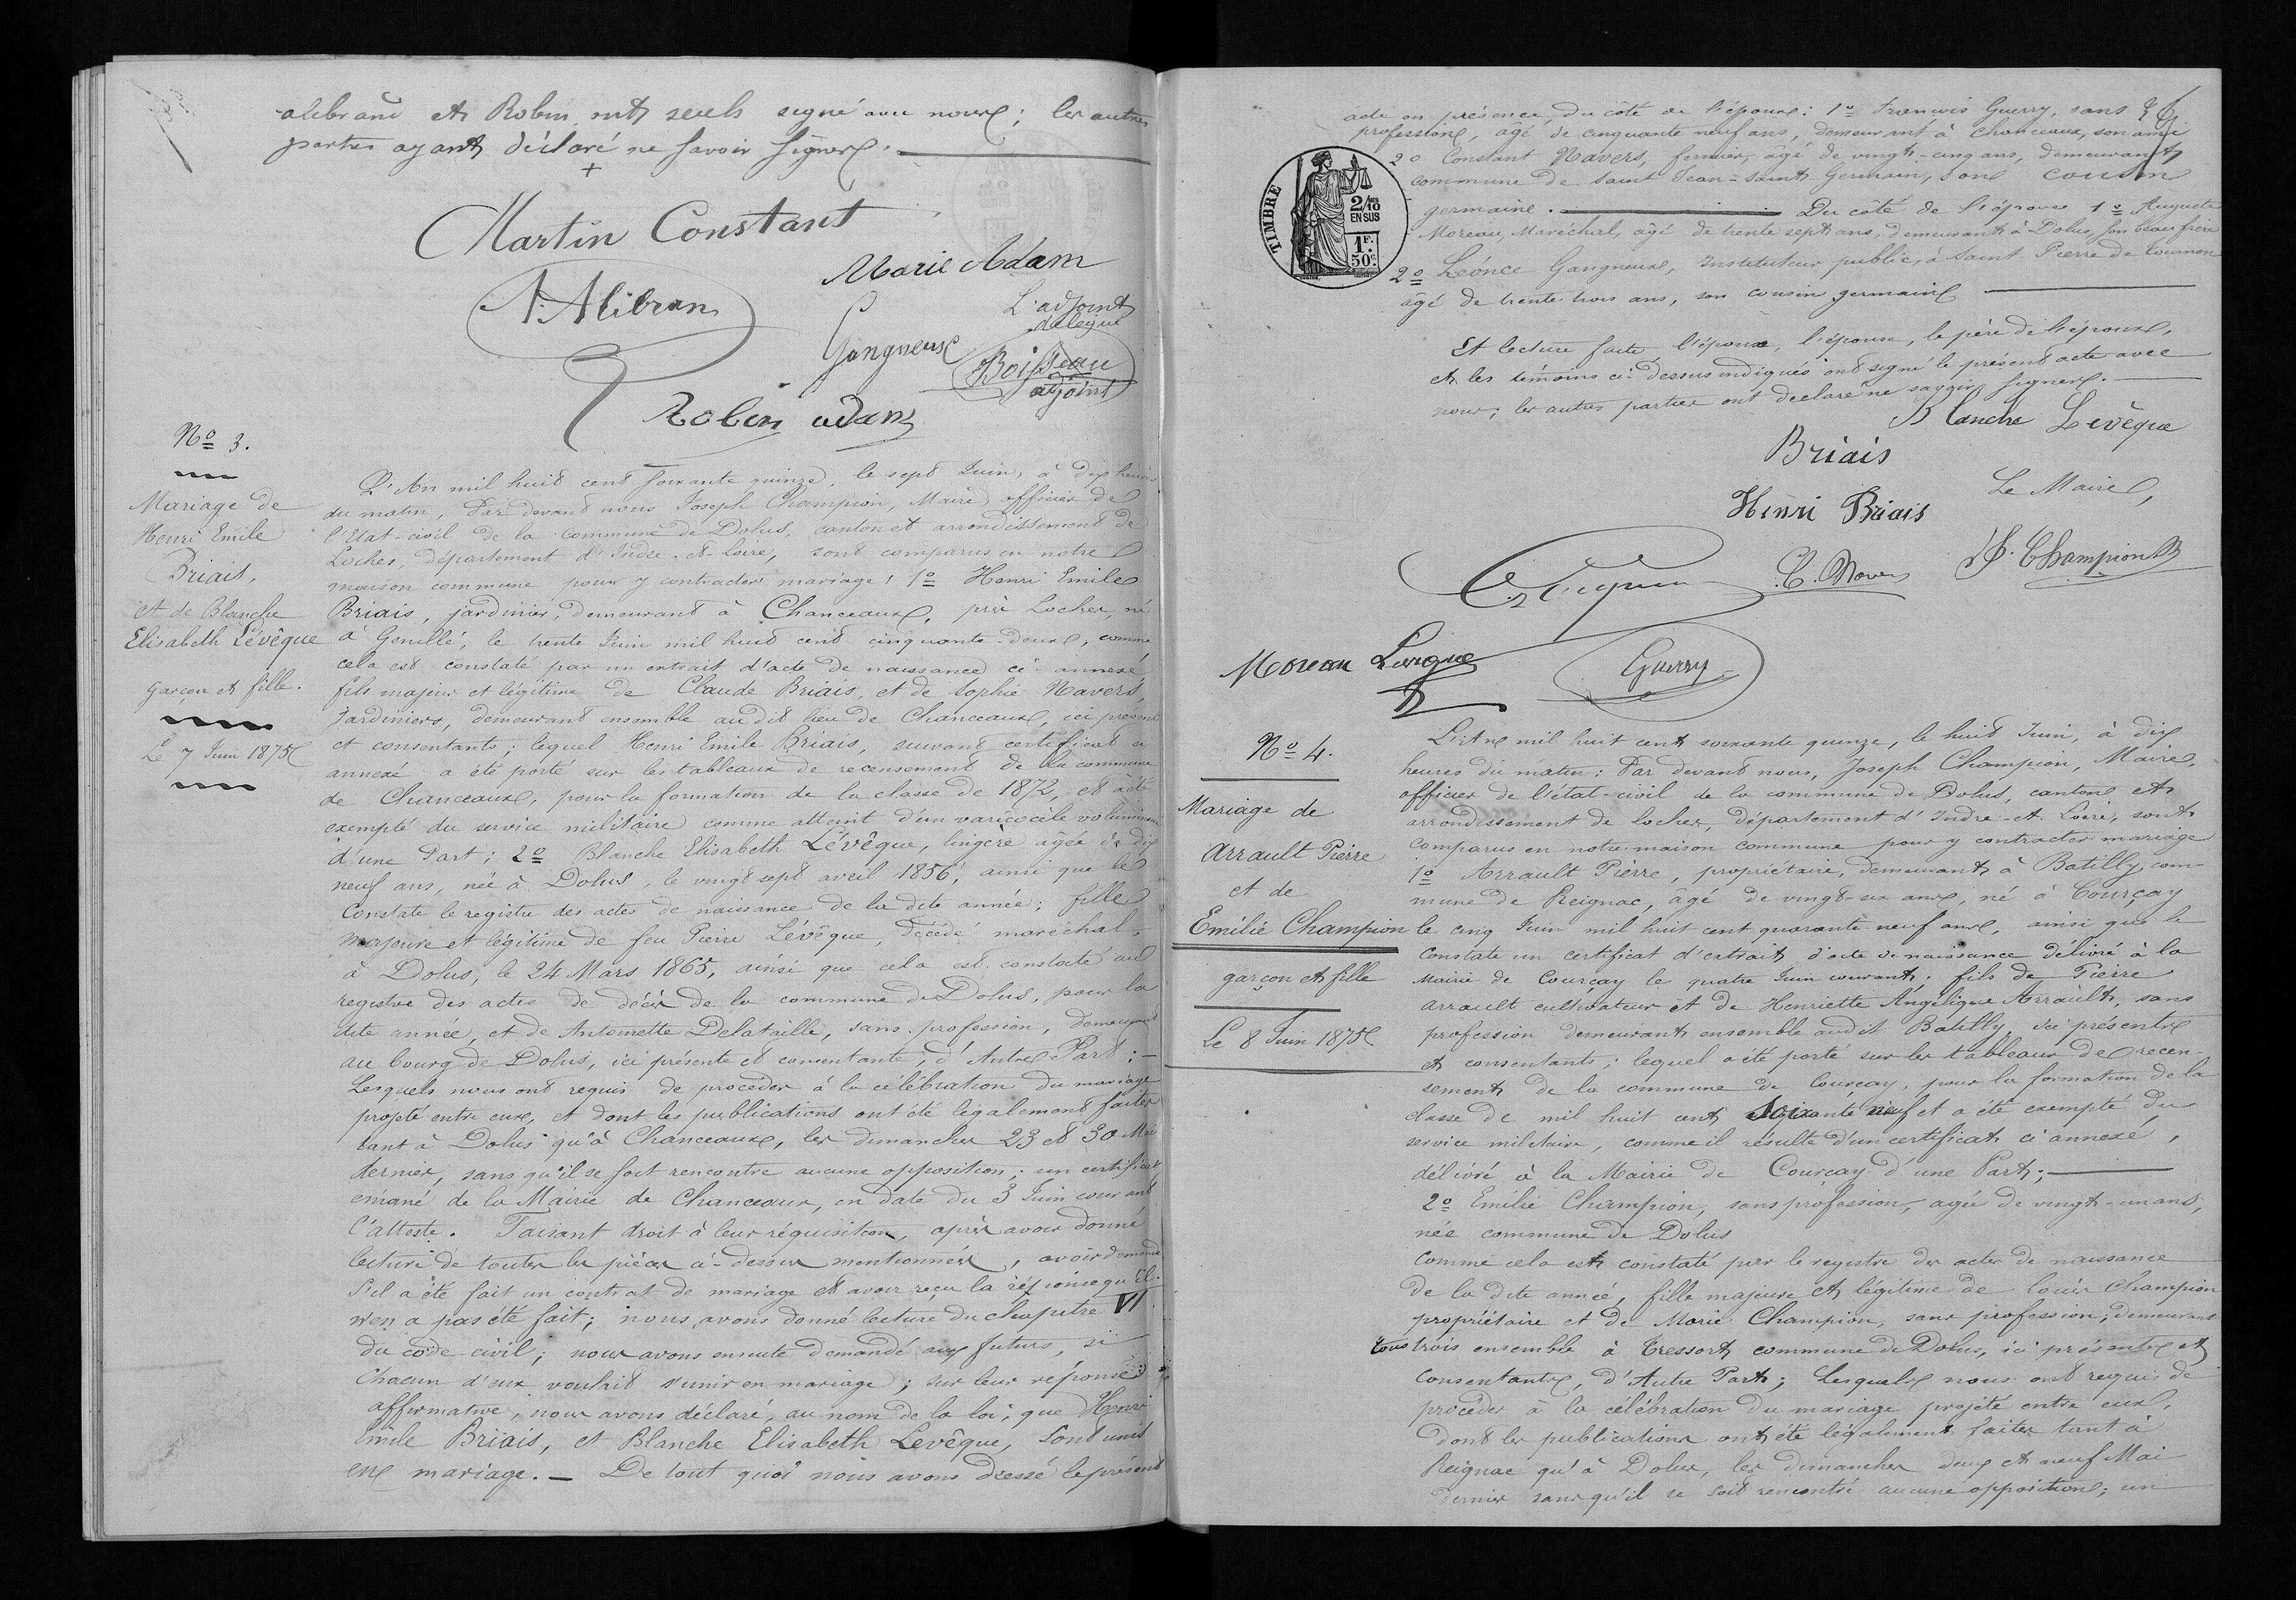 alibrand et Robin ont seuls signé avec nous; les autres
parties ayant déclaré ne savoir signer.
Martin Constant
A. Alibran
Marie Adam
L'adjoint
délégué
Gangneux
Boisseau
adjoint
Robin adam
Nº 3.
Mariage de
Henri Emile
Briais,
et de Blanche
Elisabeth Lévêque
garçon et fille.
Le 7 Juin 1875
L'An mil huit cent soixante quinze, le sept Juin, à dix heures
du matin, Par devant nous Joseph Champion, Maire officier de
l'Etat-civil de la commune de Dolus, canton et arrondissement de
Loches, département d'Indre-et-Loire, sont comparus en notre
maison commune pour y contracter mariage, 1º Henri Emile
Briais, jardinier, demeurant à Chanceaux, près Loches, né
à Genillé, le trente Juin mil huit cent cinquante-deux, comme
cela est constaté par un extrait d'acte de naissance ci-annexé
fils majeur et légitime de Claude Briais, et de Sophie Navers,
Jardiniers, demeurant ensemble audit lieu de Chanceaux, ici présents
et consentants; lequel Henri Emile Briais, suivant certificat ci
annexé a été porté sur les tableaux de recensement de la commune
de Chanceaux, pour la formation de la classe de 1872, et a été
exempté du service militaire comme atteint d'un varicocèle volumineux
d'une Part; 2º Blanche Elisabeth Lévêque, lingère âgée de dix
neuf ans, née à Dolus, le vingt sept avril 1856, ainsi que le
Constate le registre des actes de naissance de la dite année; fille
majeure et légitime de feu Pierre Lévêque, décédé maréchal,
à Dolus, le 24 Mars 1865, ainsi que cela est constaté au
registre des actes de décès de la commune de Dolus, pour la
dite année, et de Antoinette Delataille, sans profession, demeurant
au bourg de Dolus, ici présente et consentante, d'Autre Part;
Lesquels nous ont requis de procéder à la célébration du mariage
projeté entre eux, et dont les publications ont été légalement faites
tant à Dolus qu'à Chanceaux, les dimanches 23 et 30 Mai
dernier, sans qu'il se soit rencontré aucune opposition; un certificat
émané de la Mairie de Chanceaux, en date du 3 Juin courant
l'atteste. Faisant droit à leur réquisition, après avoir donné
lecture de toutes les pièces ci-dessus mentionnées, avoir demandé
s'il a été fait un contrat de mariage et avoir reçu la réponse qu'il
n'en a pas été fait; nous avons donné lecture du chapitre VI
du code civil; nous avons ensuite demandé aux futurs, si
Chacun d'eux voulait s'unir en mariage; sur leur réponse
affirmative, nous avons déclaré, au nom de la loi, que Henri
Emile Briais, et Blanche Elisabeth Levêque, sont unis
en mariage. — De tout quoi nous avons dressé le présent
acte en présence, du côté de l'époux: 1º François Guerry, sans
profession, âgé de cinquante neuf ans, demeurant à Chanceaux, son ami
2º Constant Navers, fermier, âgé de vingt-cinq ans, demeurant
commune de Saint Jean-Saint Germain, son cousin
germain. Du côté de l'épouse 1º Auguste
Moreau, Maréchal, âgé de trente sept ans, demeurant à Dolus, son beau frère
2º Léonce Gangneux, Instituteur public, à Saint Pierre de Tournon
âgé de trente trois ans, son cousin germain
TIMBRE
2/10
EN SUS
1F.
50c.
Et lecture faite, l'époux, l'épouse, le père de l'époux,
et les témoins ci-dessus indiqués ont signé le présent acte avec
nous; les autres parties ont déclaré ne savoir signer.
Blanche Levêque
Briais
Le Maire,
Henri Briais
J. Champion
C. Navers
Moreau
Guerry
Nº 4.
Mariage de
Arrault Pierre
et de
Emilie Champion
garçon et fille
Le 8 Juin 1875
L'An mil huit cent soixante quinze, le huit Juin, à dix
heures du matin: Par devant nous, Joseph Champion, Maire,
officier de l'état-civil de la commune de Dolus, canton et
arrondissement de Loches, département d'Indre-et-Loire, sont
comparus en notre maison commune pour y contracter mariage
1º Arrault Pierre, propriétaire, demeurant à Batilly, com-
mune de Reignac, âgé de vingt-six ans, né à Courçay
le cinq Juin mil huit cent quarante neuf ans, ainsi que le
Constate un certificat d'extrait d'acte de naissance délivré à la
Mairie de Courçay le quatre Juin courant; fils de Pierre
arrault cultivateur et de Henriette Angélique Arrault, sans
profession demeurant ensemble audit Batilly, ici présents
et consentants; lequel a été porté sur les tableaux de recen-
sement de la commune de Courçay, pour la formation de la
classe de mil huit cent soixante neuf et a été exempté du
service militaire, comme il résulte d'un certificat ci annexé,
délivré à la Mairie de Courçay d'une Part;
2º Emilie Champion, sans profession, agée de vingt-un ans,
née commune de Dolus
Comme cela est constaté par le registre des actes de naissance
de la dite année, fille majeure et légitime de Louis Champion
propriétaire et de Marie Champion, sans profession; demeurant
tous trois ensemble à Tressort commune de Dolus, ici présents et
Consentants, d'Autre Part; Lesquels nous ont requis de
procéder à la célébration du mariage projeté entre eux,
dont les publications ont été légalement faites tant à
Reignac qu'à Dolus, les dimanches deux et neuf Mai
dernier sans qu'il se soit rencontré aucune opposition; un